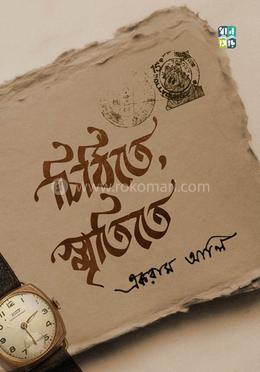 চিঠিতে,
www.rokomari.com
স্মৃতিতে
একরাম আলি